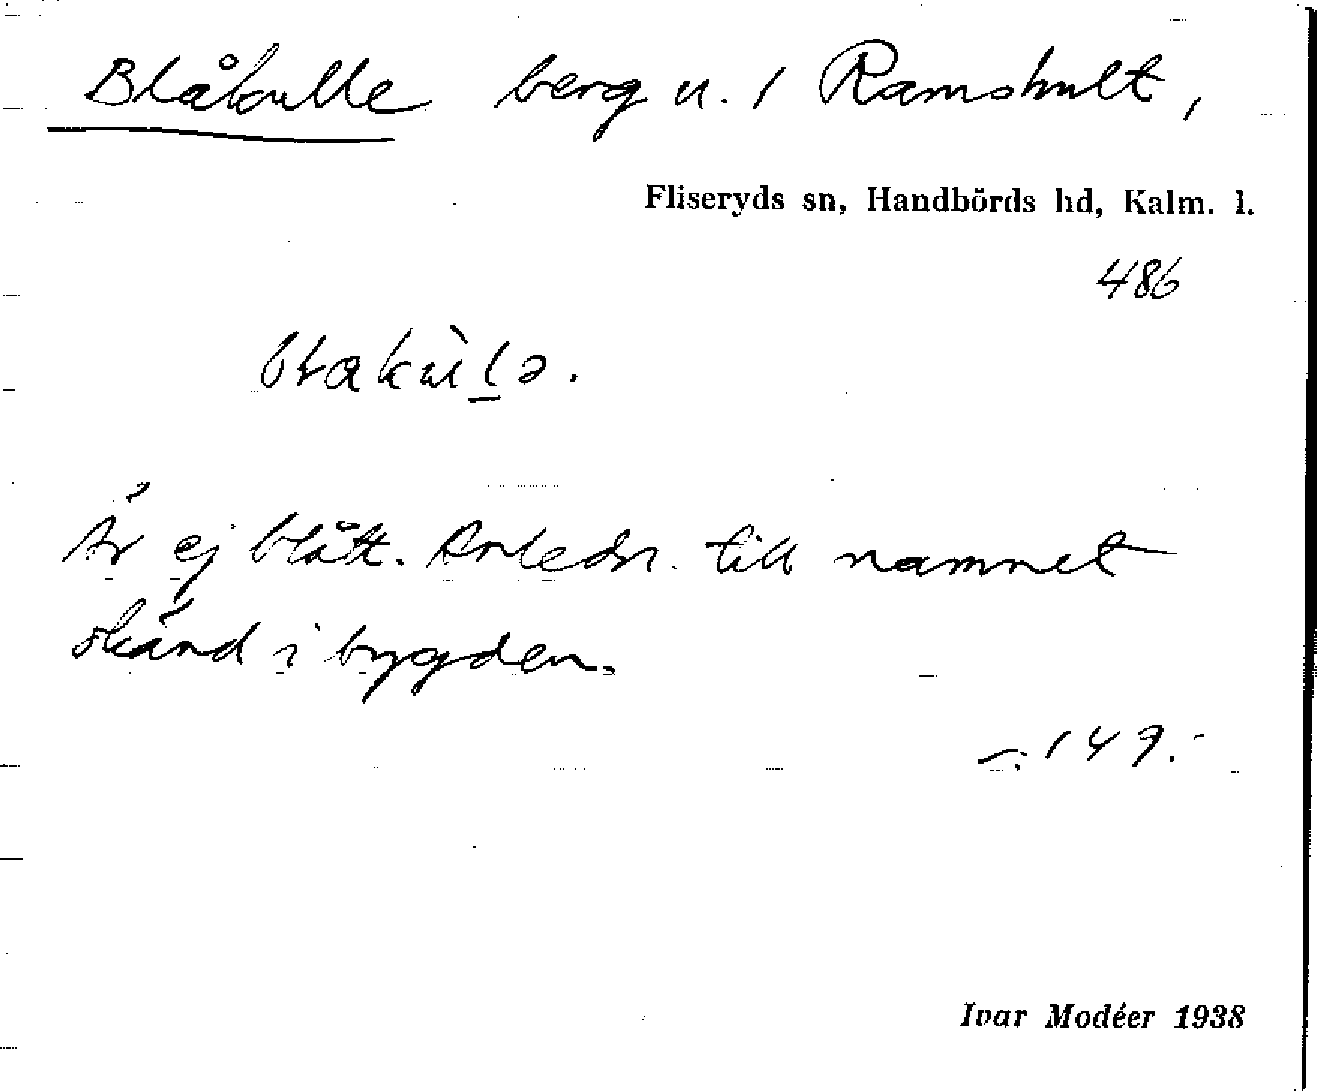 Blåkulle berg u. 1 Ramshult,
Fliseryds sn, Handbörds hd, Kalm. l.
486
Är ej blått. Anledn. till namnet
okänd i bygden.
149.
Ivar Modéer 1938